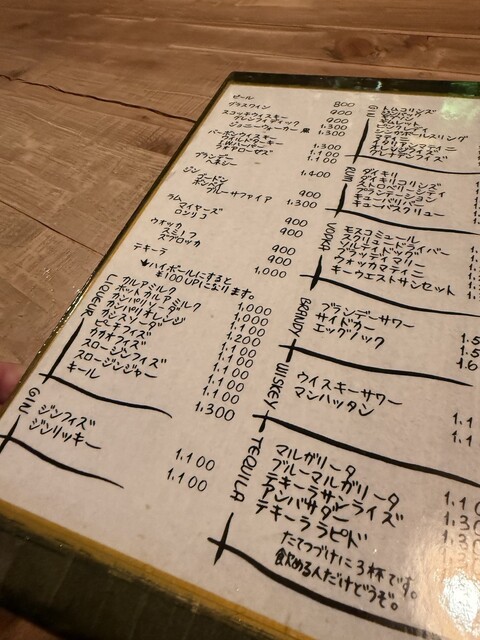 ビール 800
グラスワイン 900
スコッチウイスキー
グレンフィディック 1,300
ジョニーウォーカー 黒 1,300
バーボンウイスキー
ワイルドターキー 1,300
I.Wハーパー 1,100
フォアローゼズ 1,100
ブランデー
ヘネシー 1,400
ジン
ゴードン 900
ボンベイ
ブルーサファイア 1,300
ラム
マイヤーズ 900
ロンリコ 900
ウオッカ
スミノフ 900
ズブロッカ 900
テキーラ 1,000
↓ハイボールにすると
¥100UPになります。
LIQUEUR
カルアミルク 1,000
ホットカルアミルク 1,000
カンパリソーダ 1,100
カンパリオレンジ 1,200
カシスソーダ 1,100
ピーチフィズ 1,100
カカオフィズ 1,100
スロージンフィズ 1,100
スロージンジャー 1,100
キール 1,300
GIN
ジンフィズ 1,100
ジンリッキー 1,100
GIN
トムコリンズ
ギムレット
シンガポールスリング
マティーニ
イタリアンマティーニ
オレンジフィズ
グレナデンフィズ
RUM
ダイキリ
ダイキリコリンズ
ストロベリーダイキリ
プランテーション
キューバリバー
キューバスクリュー
VODKA
モスコミュール
スクリュードライバー
ソルティドッグ
ブラッディマリー
ウォッカマティーニ
キーウエストサンセット
BRANDY
ブランデーサワー
サイドカー
エッグノック
WISKEY
ウイスキーサワー
マンハッタン
TEQUILA
マルガリータ
ブルーマルガリータ
テキーラサンライズ
アンバサダー
テキーララピド
たてつづけに3杯です。
飲める人だけどうぞ。